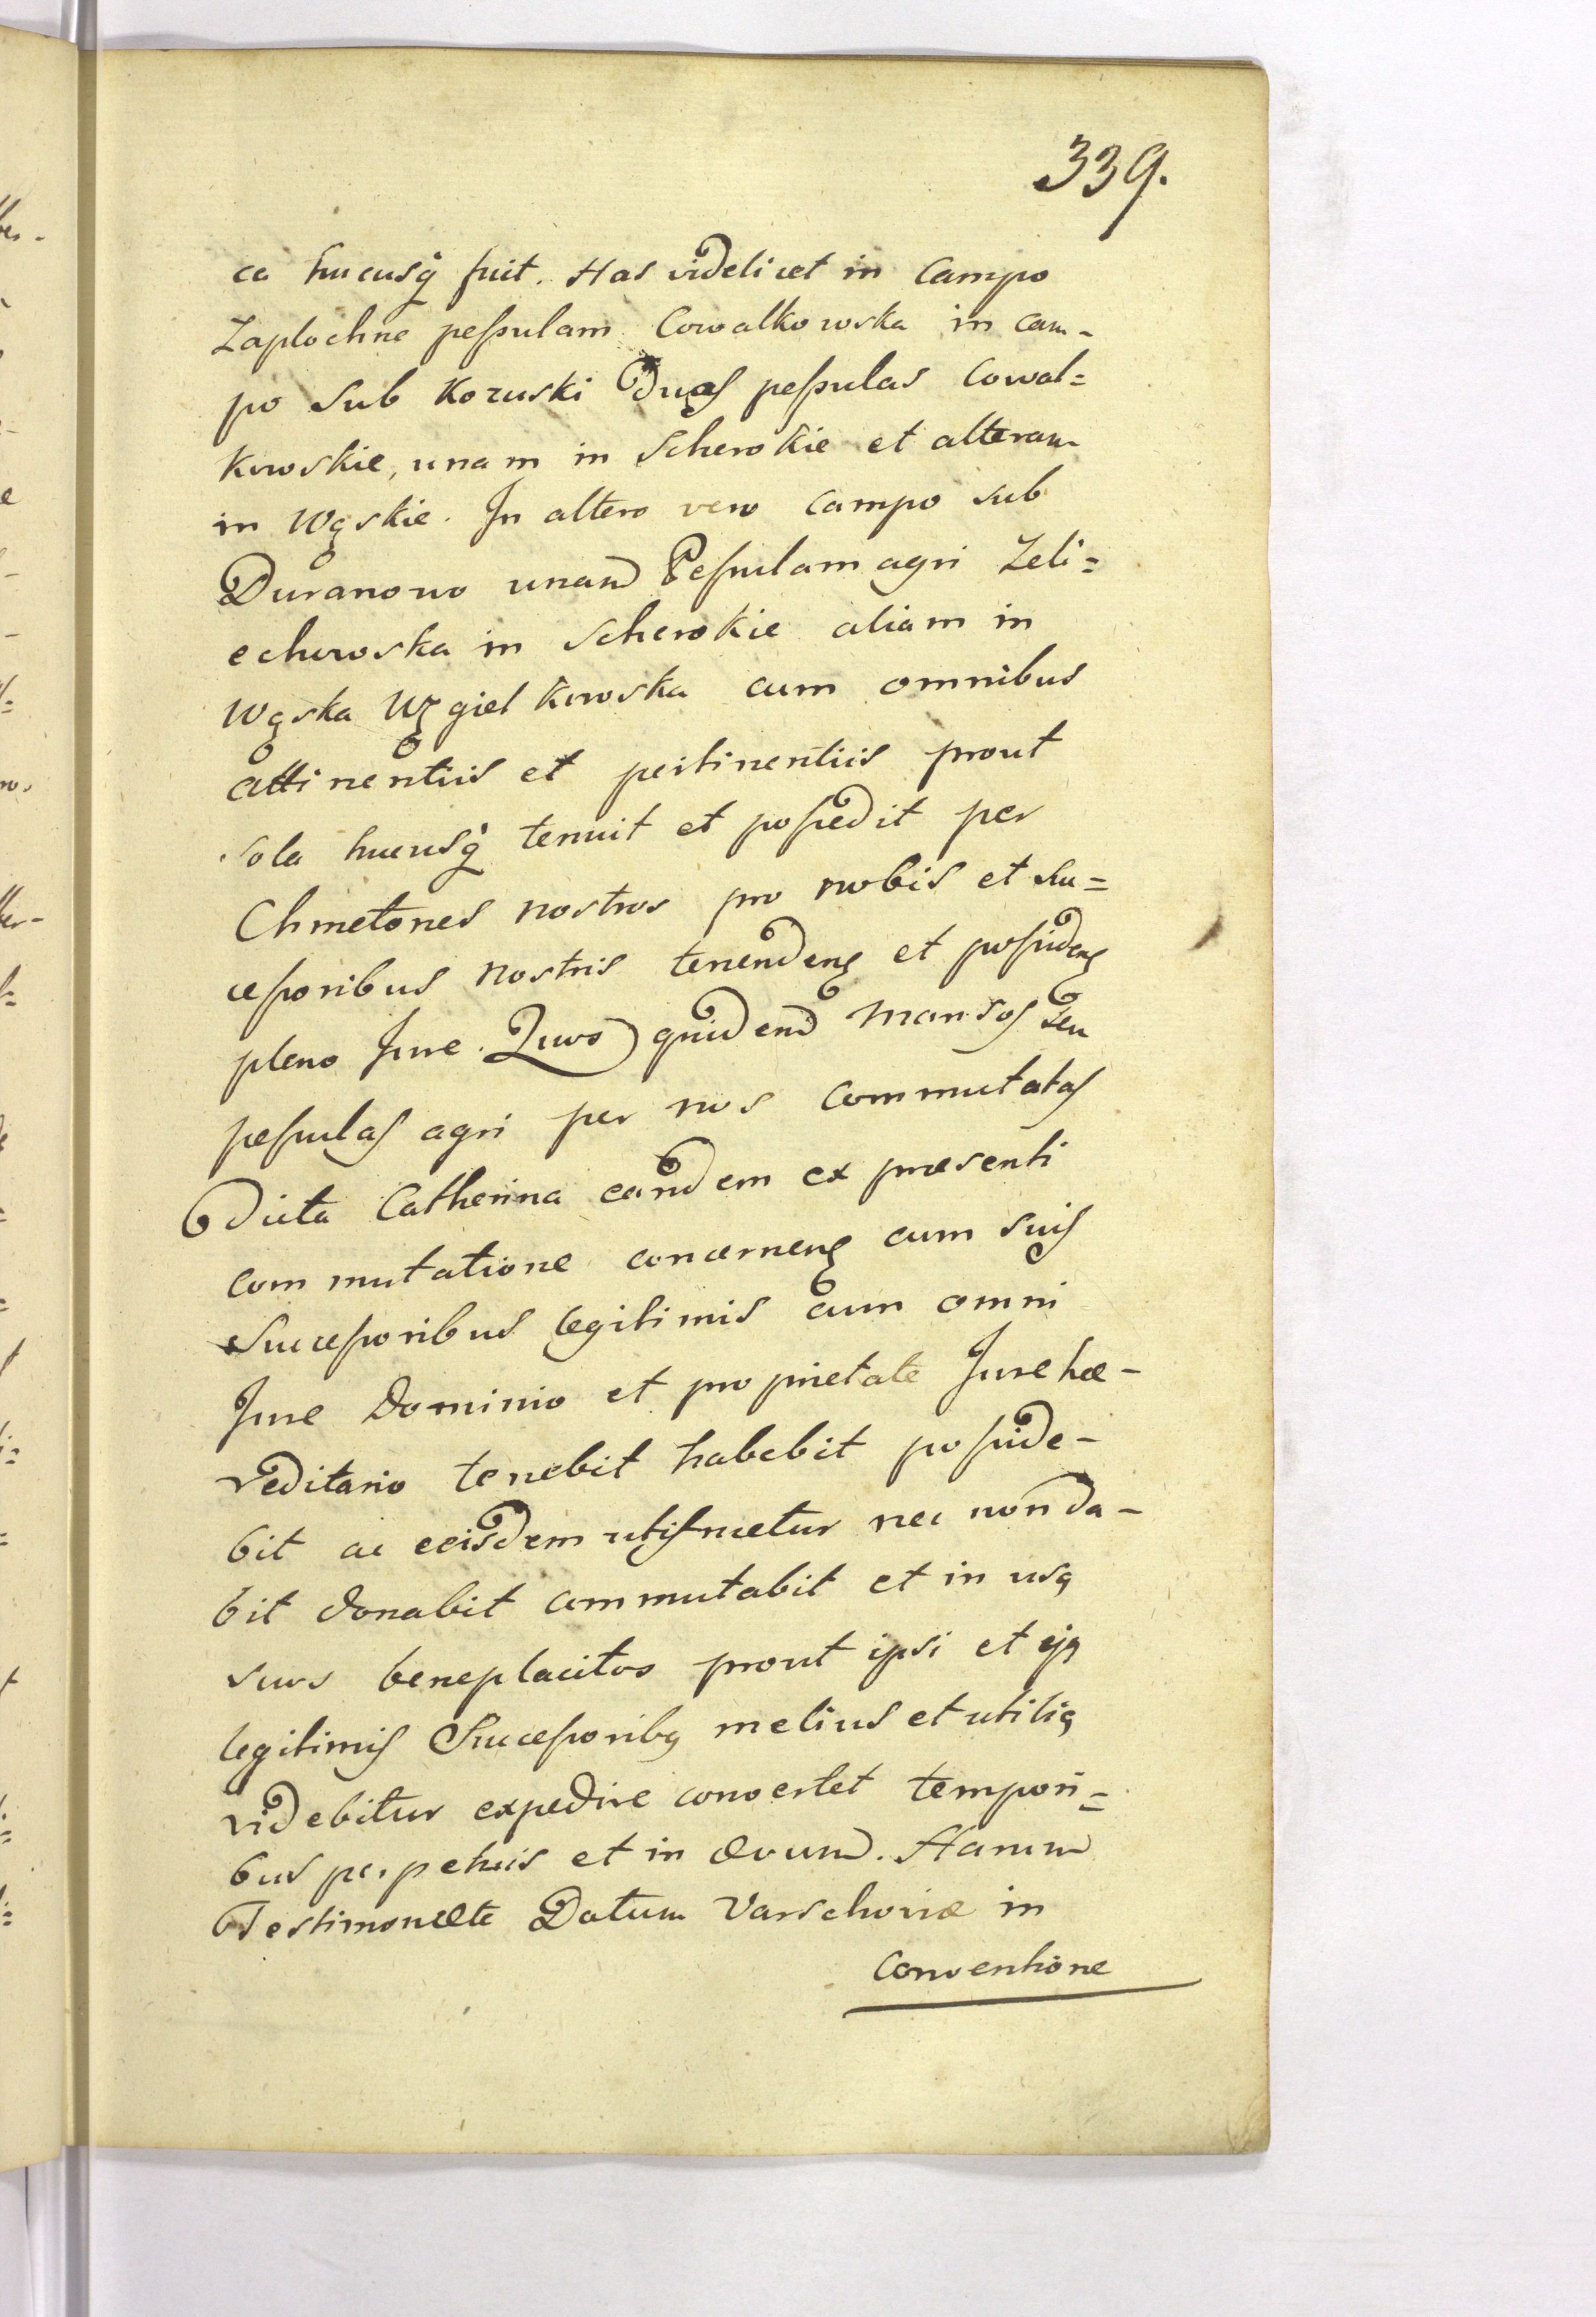 339.
ca hucusq́ fuit. Has videlicet in Campo
Zaplochne peßulam Cowalkowska in cam-
po sub Kozuski Duas peßulas Cowal=
kowskie, unam in Scherokie et alteram
in Wąskie. In altero vero campo sub
Duranowo unam Peßulam agri Zeli=
echowska in Scherokie aliam in
Wąska Węgielkowska cum omnibus
attinentiis et pertinentiis prout
sola hucusq́ tenuit et poßedit per
Chmetones nostros pro nobis et suc=
ceßoribus nostris tenendens et poßidens
pleno Jure. Quos quidem Mansos seu
peßulas agri per nos commutatas
Dicta Catherina eandem ex præsenti
commutatione concernens cum suis
Succeßoribus legitimis cum omni
Jure Dominio et proprietate Jure hæ-
reditario tenebit habebit poßide-
bit ac eisdem utifruetur nec non da-
bit donabit commutabit et in usq
suos beneplacitos prout ipsi et ejq
legitimis Succeßoribq melius et utiliq
videbitur expedire convertet tempori=
bus perpetuis et in ævum. Harum
Testimon Datum Varschoviæ in
Conventione